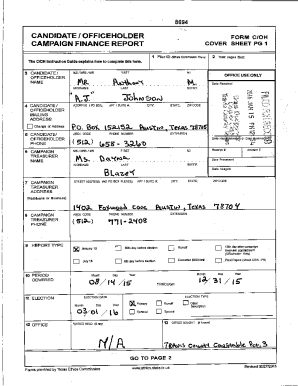 8694
CANDIDATE / OFFICEHOLDER
CAMPAIGN FINANCE REPORT
FORM C/OH
COVER SHEET PG 1
The C/OH Instruction Guide explains how to complete this form.
1 Filer ID (Ethics Commission Filers)
2 Total pages filed:
3 CANDIDATE / OFFICEHOLDER NAME
MS / MRS / MR FIRST MI
Mr. Anthony M.
NICKNAME LAST SUFFIX
A.J. Johnson
OFFICE USE ONLY
Date Received
4 CANDIDATE / OFFICEHOLDER MAILING ADDRESS
Change of Address
PO BOX 152152 Austin, Texas 78715
5 CANDIDATE / OFFICEHOLDER PHONE
AREA CODE PHONE NUMBER EXTENSION
(512) 658-3260
6 CAMPAIGN TREASURER NAME
MS / MRS / MR FIRST MI
Ms. Dayna
NICKNAME LAST SUFFIX
Blazey
Date Processed
Date Imaged
7 CAMPAIGN TREASURER ADDRESS
(Residence or Business)
1402 Foxwood Cove Austin, Texas 78704
8 CAMPAIGN TREASURER PHONE
AREA CODE PHONE NUMBER EXTENSION
(512) 771-2408
9 REPORT TYPE
January 15
30th day before election
Runoff
15th day after campaign treasurer appointment (Officeholder Only)
July 15
8th day before election
Exceeded $500 limit
Final Report (Attach C/OH - FR)
10 PERIOD COVERED
Month Day Year
08 / 14 / 15
THROUGH
Month Day Year
12 / 31 / 15
11 ELECTION
ELECTION DATE
Month Day Year
03 / 01 / 16
ELECTION TYPE
Primary
Runoff
Other Description
General
Special
12 OFFICE
OFFICE HELD (if any)
N/A
13 OFFICE SOUGHT (if known)
Travis County Constable Pct. 3
GO TO PAGE 2
Forms provided by Texas Ethics Commission
www.ethics.state.tx.us